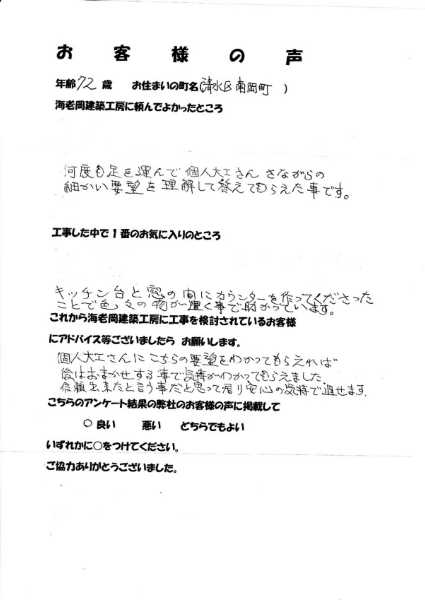 お客様の声
年齢72歳 お住まいの町名(清水区南岡町 )
海老岡建築工房に頼んでよかったところ
何度も足を運んで個人大工さんさながらの
細かい要望を理解して答えてもらえた事です。
工事した中で1番のお気に入りのところ
キッチン台と窓の間にカウンターを作ってくださった
ことで色々の物が置く事で助かっています。
これから海老岡建築工房に工事を検討されているお客様
にアドバイス等ございましたら お願いします。
個人大工さんにこちらの要望をわかってもらえれば
後はおまかせする事で気持がわかってもらえました
信頼出来たと言う事だと思って居り安心の気持で過せます.
こちらのアンケート結果の弊社のお客様の声に掲載して
○ 良い 悪い どちらでもよい
いずれかに○をつけてください。
ご協力ありがとうございました。